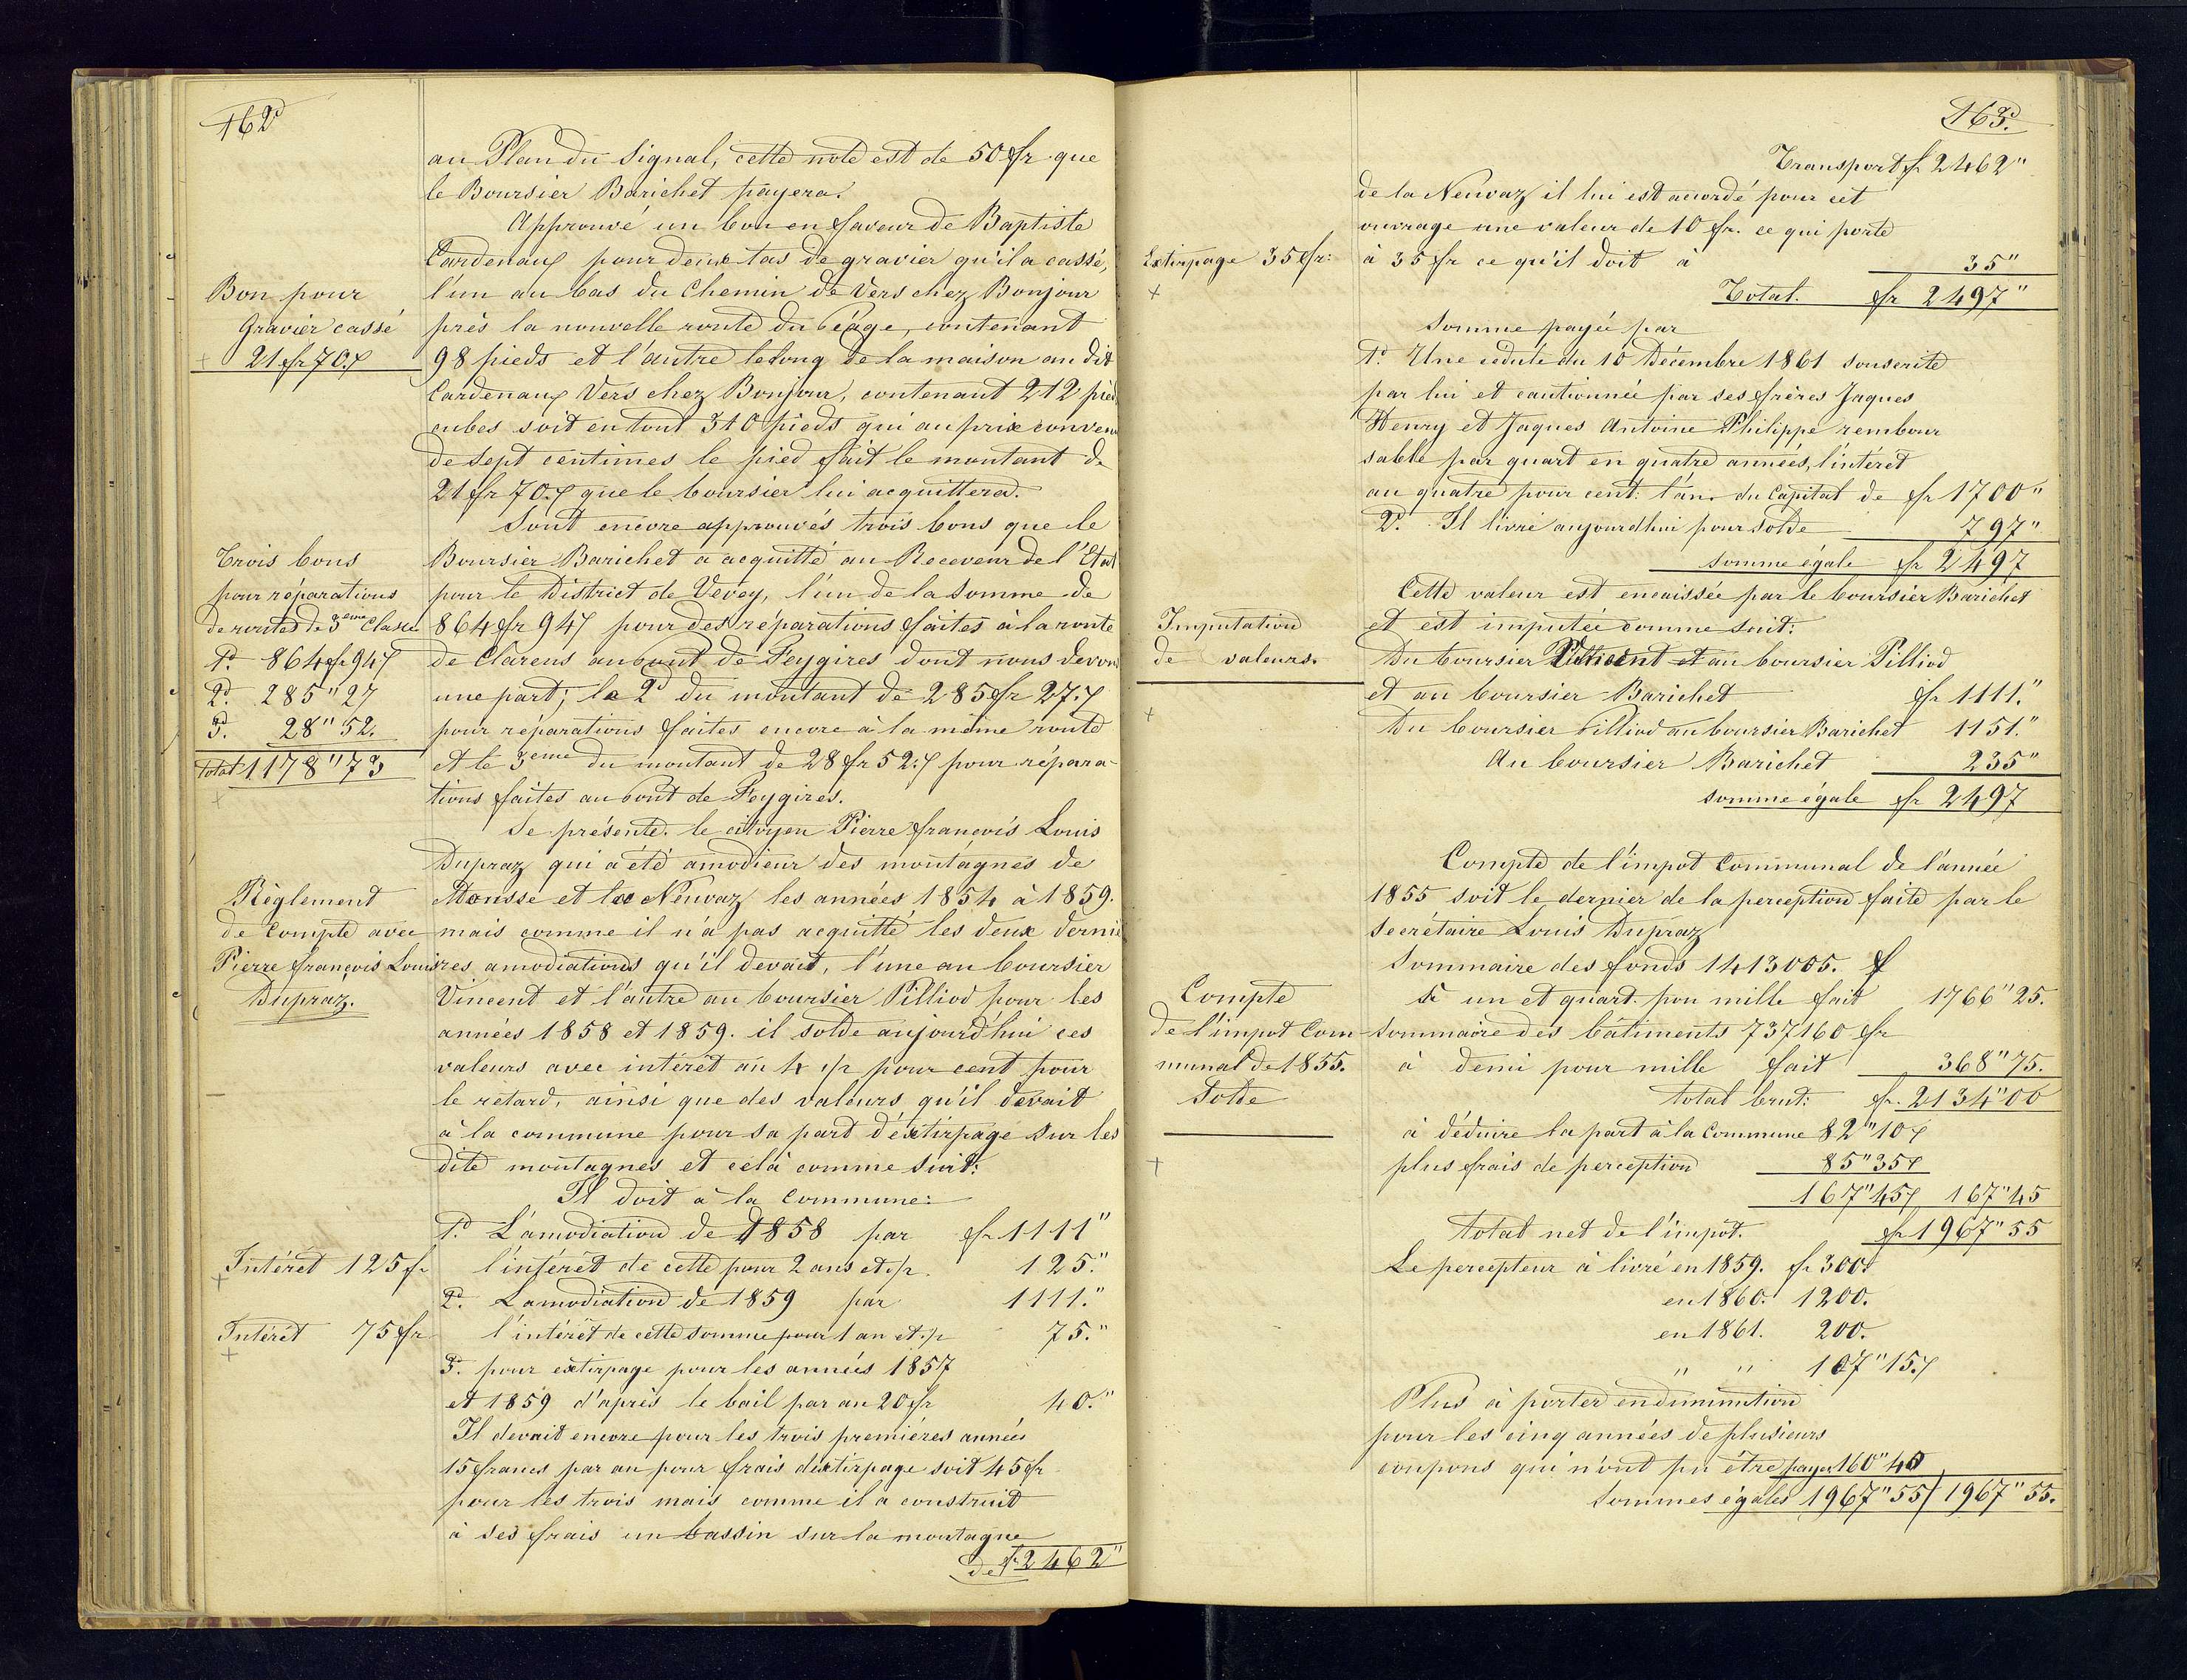 162
au Plan du Signal, cette note est de 50 fr que
le Boursier Barichet payera.
Approuvé un bon en faveur de Baptiste
Cardenaux pour deux tas de gravier qu'il a cassé,
Bon pour
Gravier cassé
21 fr 70.
l'un au bas du Chemin de Vers chez Bonjour
près la nouvelle route du Péage, contenant
98 pieds et l'autre le long de la maison au dit
Cardenaux Vers chez Bonjour, contenant 212 pied
cubes soit en tout 310 pieds qui au prix conven
de sept centimes le pied fait le montant de
21 fr 70. que le boursier lui acquittera.
Sont encore approuvés trois bons que le
Trois bons
pour réparations
de routes de 3eme classe
1° 864 fr 94
2° 285 " 27
3° 28 " 52.
Total 1178 " 73
Boursier Barichet a acquitté au Receveur de l'Etat
pour le District de Vevey, l'un de la somme de
864 fr 94 pour des réparations faites à la route
de Clarens au pont de Feygires dont nous devons
une part; le 2d du montant de 285 fr 27.
pour réparations faites encore à la même route
et le 3eme du montant de 28 fr 52. pour répara-
tions faites au pont de Feygires.
Se présente le citoyen Pierre françois Louis
Dupraz qui a été amodieur des montagnes de
Règlement
de Compte avec
Pierre françois Louis
Dupraz.
et la Neuvaz les années 1854 à 1859.
mais comme il n'a pas acquitté les deux derniè
res amodiations qu'il devait, l'une au boursier
Vincent et l'autre au boursier Pilliod pour les
années 1858 et 1859. il solde aujourd'hui ces
valeurs avec intérêt au 4 1/2 pour cent pour
le retard, ainsi que des valeurs qu'il devait
à la commune pour sa part d'extirpage sur les
dite montagnes et celà comme suit:
Il doit à la Commune:
1° L'amodiation de 1858 par fr 1111 "
Intérêt 125 fr
l'intérêt de cette pour 2 ans et 1/2 125. "
2° L'amodiation de 1859 par 1111. "
Intérêt 75 fr
l'intérêt de cette somme pour 1 an et 1/2 75. "
3° pour extirpage pour les années 1857
et 1859 d'après le bail par an 20 fr 40. "
Il devait encore pour les trois premières années
15 francs par an pour frais d'extirpage soit 45 fr
pour les trois mais comme il a construit
à ses frais un bassin sur la montagne
de fr 2462 "
163.
Transport fr 2462 "
de la Neuvaz il lui est accordé pour cet
ouvrage une valeur de 10 fr. ce qui porte
Extirpage 35 fr:
à 35 fr ce qu'il doit à 35 "
Total. fr 2497 "
Somme payée par
1° Une cédule du 10 Décembre 1861 souscrite
par lui et cautionnée par ses frères Jaques
Henry et Jaques Antoine Philippe rembour
sable par quart en quatre années, l'intérêt
au quatre pour cent l'an du Capital de fr 1700 "
2° Il livre aujourdhui pour solde 797 "
somme égale fr 2497
Cette valeur est encaissée par le boursier Barichet
Imputation
de valeurs.
et est imputée comme suit:
Du boursier Vincent et au boursier Pilliod
et au boursier Barichet fr 1111. "
Du boursier Pilliod au boursier Barichet 1151. "
Au boursier Barichet 235 "
somme égale fr 2497
Compte de l'impot Communal de l'année
1855 soit le dernier de la perception faite par le
Secrétaire Louis Dupraz
Sommaire des fonds 1413005. f
Compte
de l'impot Com
munal de 1855.
Solde
à un et quart pou mille fait 1766 " 25.
Sommaire des bâtiments 737160 fr
à demi pour mille fait 368 " 75.
Total brut: fr. 2134 " 00
à déduire la part à la Commune 82 " 10
plus frais de perception 85 " 35
167 " 45 167 " 45
Total net de l'impot. fr 1967 " 55
Le percepteur à livré en 1859. fr 300.
en 1860. 1200.
en 1861. 200.
" " 107 " 15
Plus à porter en diminution
pour les cinq années de plusieurs
coupons qui n'ont pu être payés 160 " 40
Sommes égales 1967 " 55 1967 " 55.